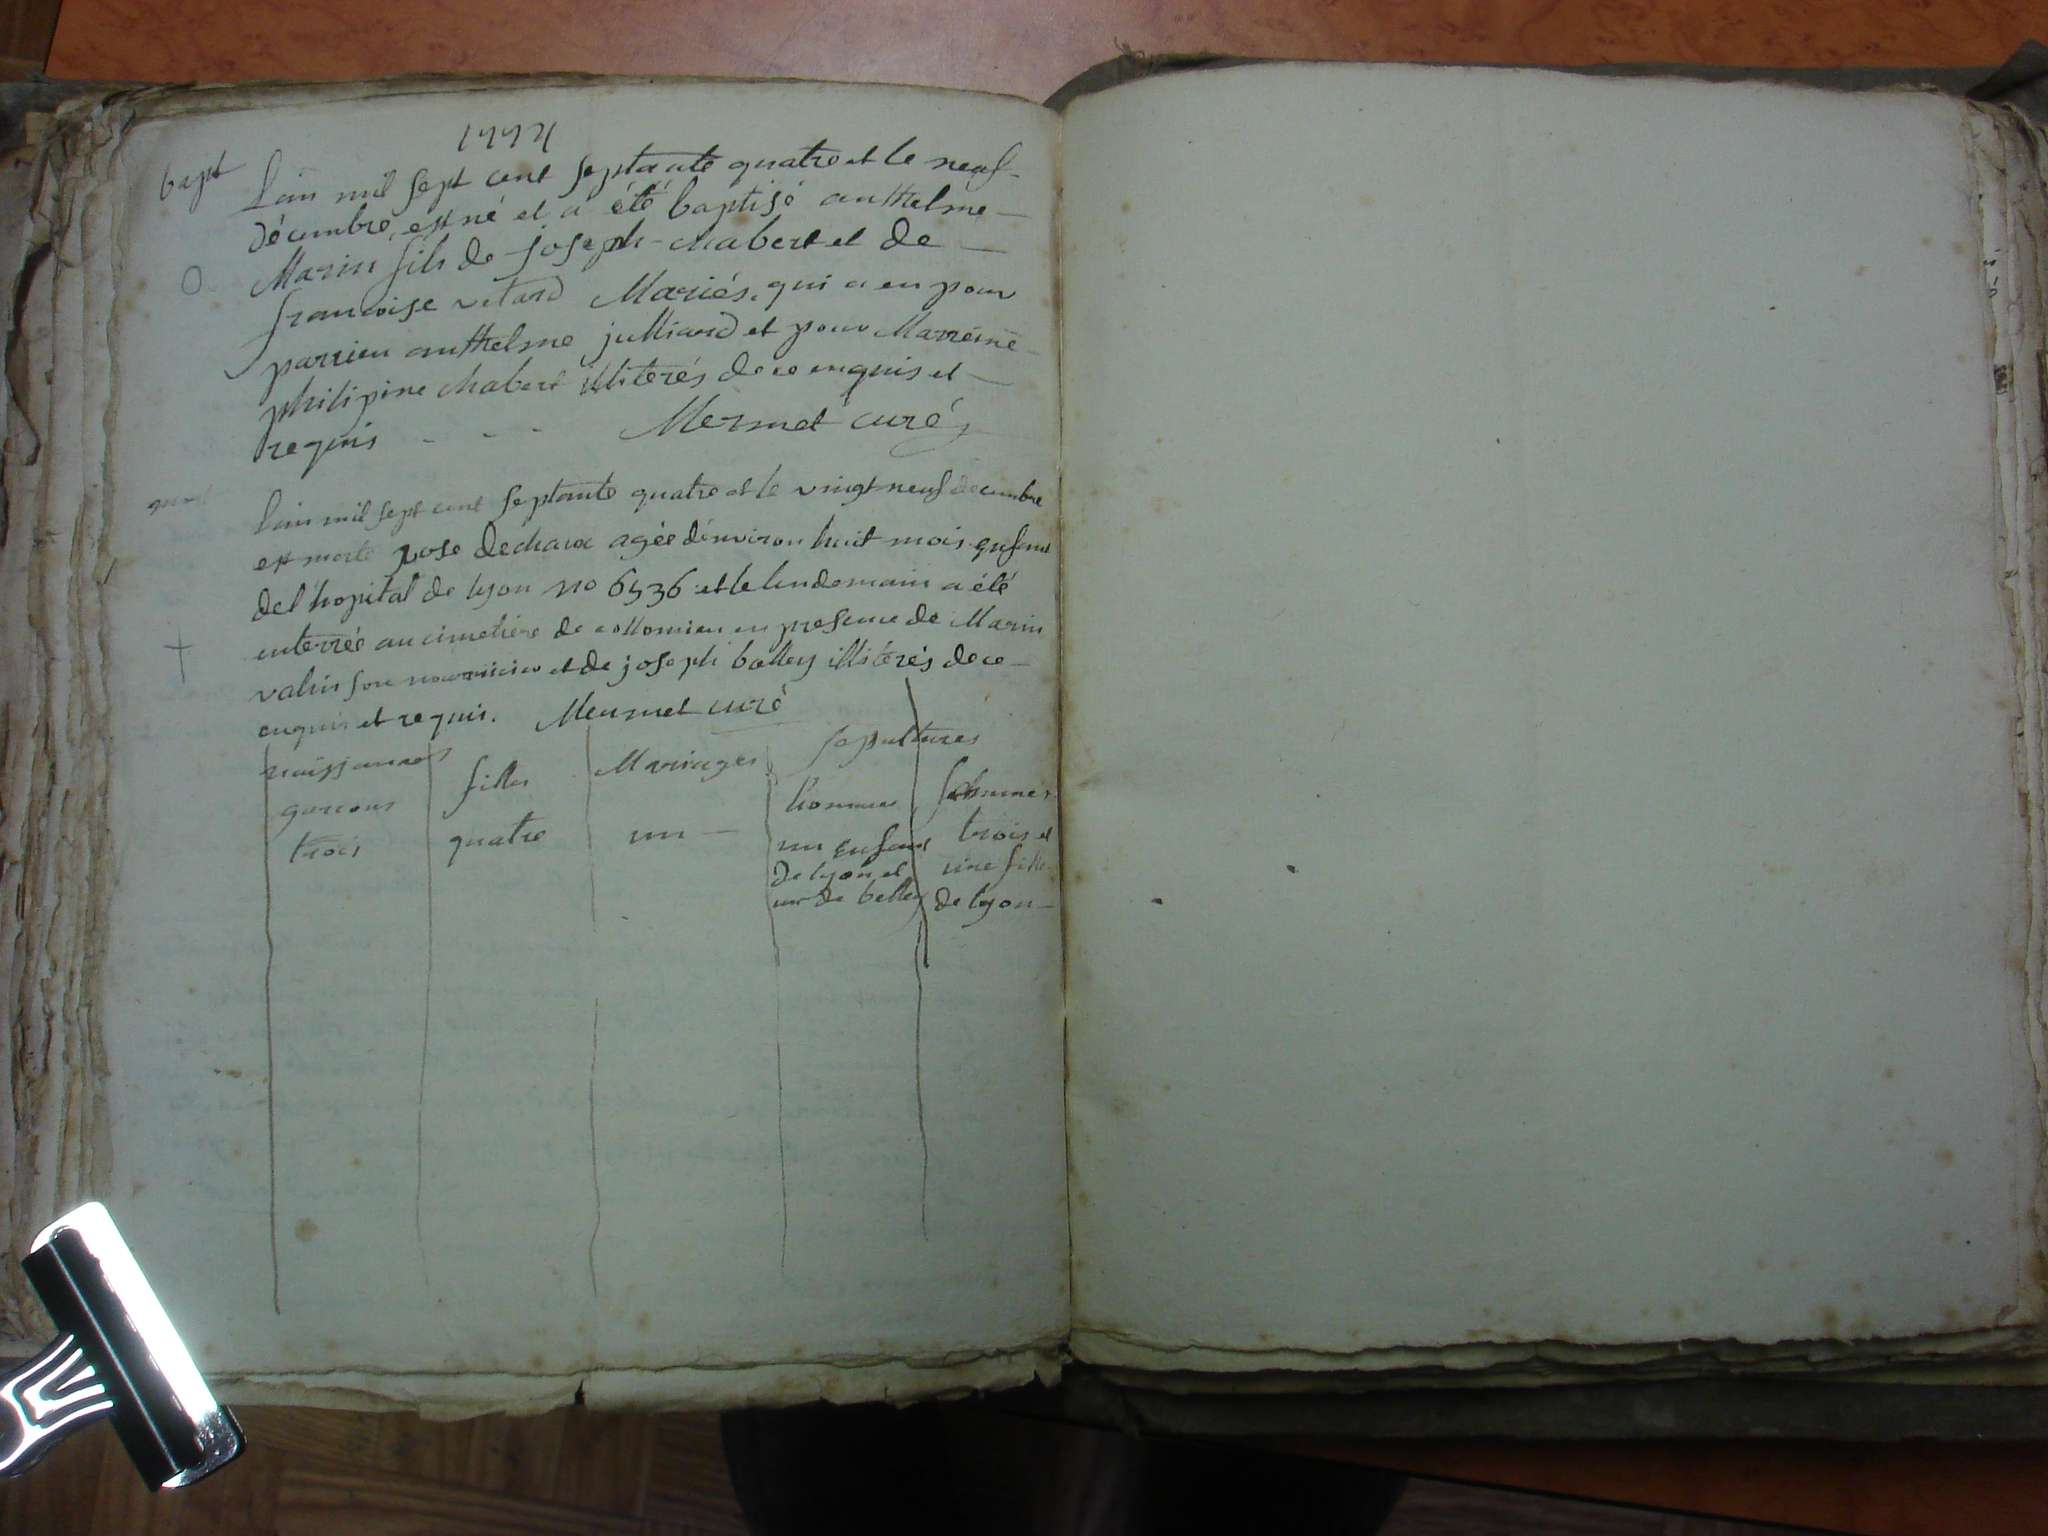 1774
bapt
L'an mil sept cent septante quatre et le neuf
décembre, est né et a été baptisé anthelme
Marin fils de joseph chabert et de
francoise vitard Mariés, qui a eu pour
parrien anthelme julliard et pour Marreine
philipine chabert illiterés de ce enquis et
requis - - - Mermet curé
L'an mil sept cent septante quatre et le vingt neuf decembre
est morte rose dechaux agée d'environ huit mois enfant
de l'hopital de lyon no 6536 et le lendemain a été
enterrée au cimetière de collomieu en presence de Marin
valin son nourricier et de joseph balley illitérés de ce
enquis et requis. Mermet curé
naissances Mariages sepultures
garcons filles hommes femmes
trois quatre un un enfant trois et
de lyon et une fille
un de belley de lyon